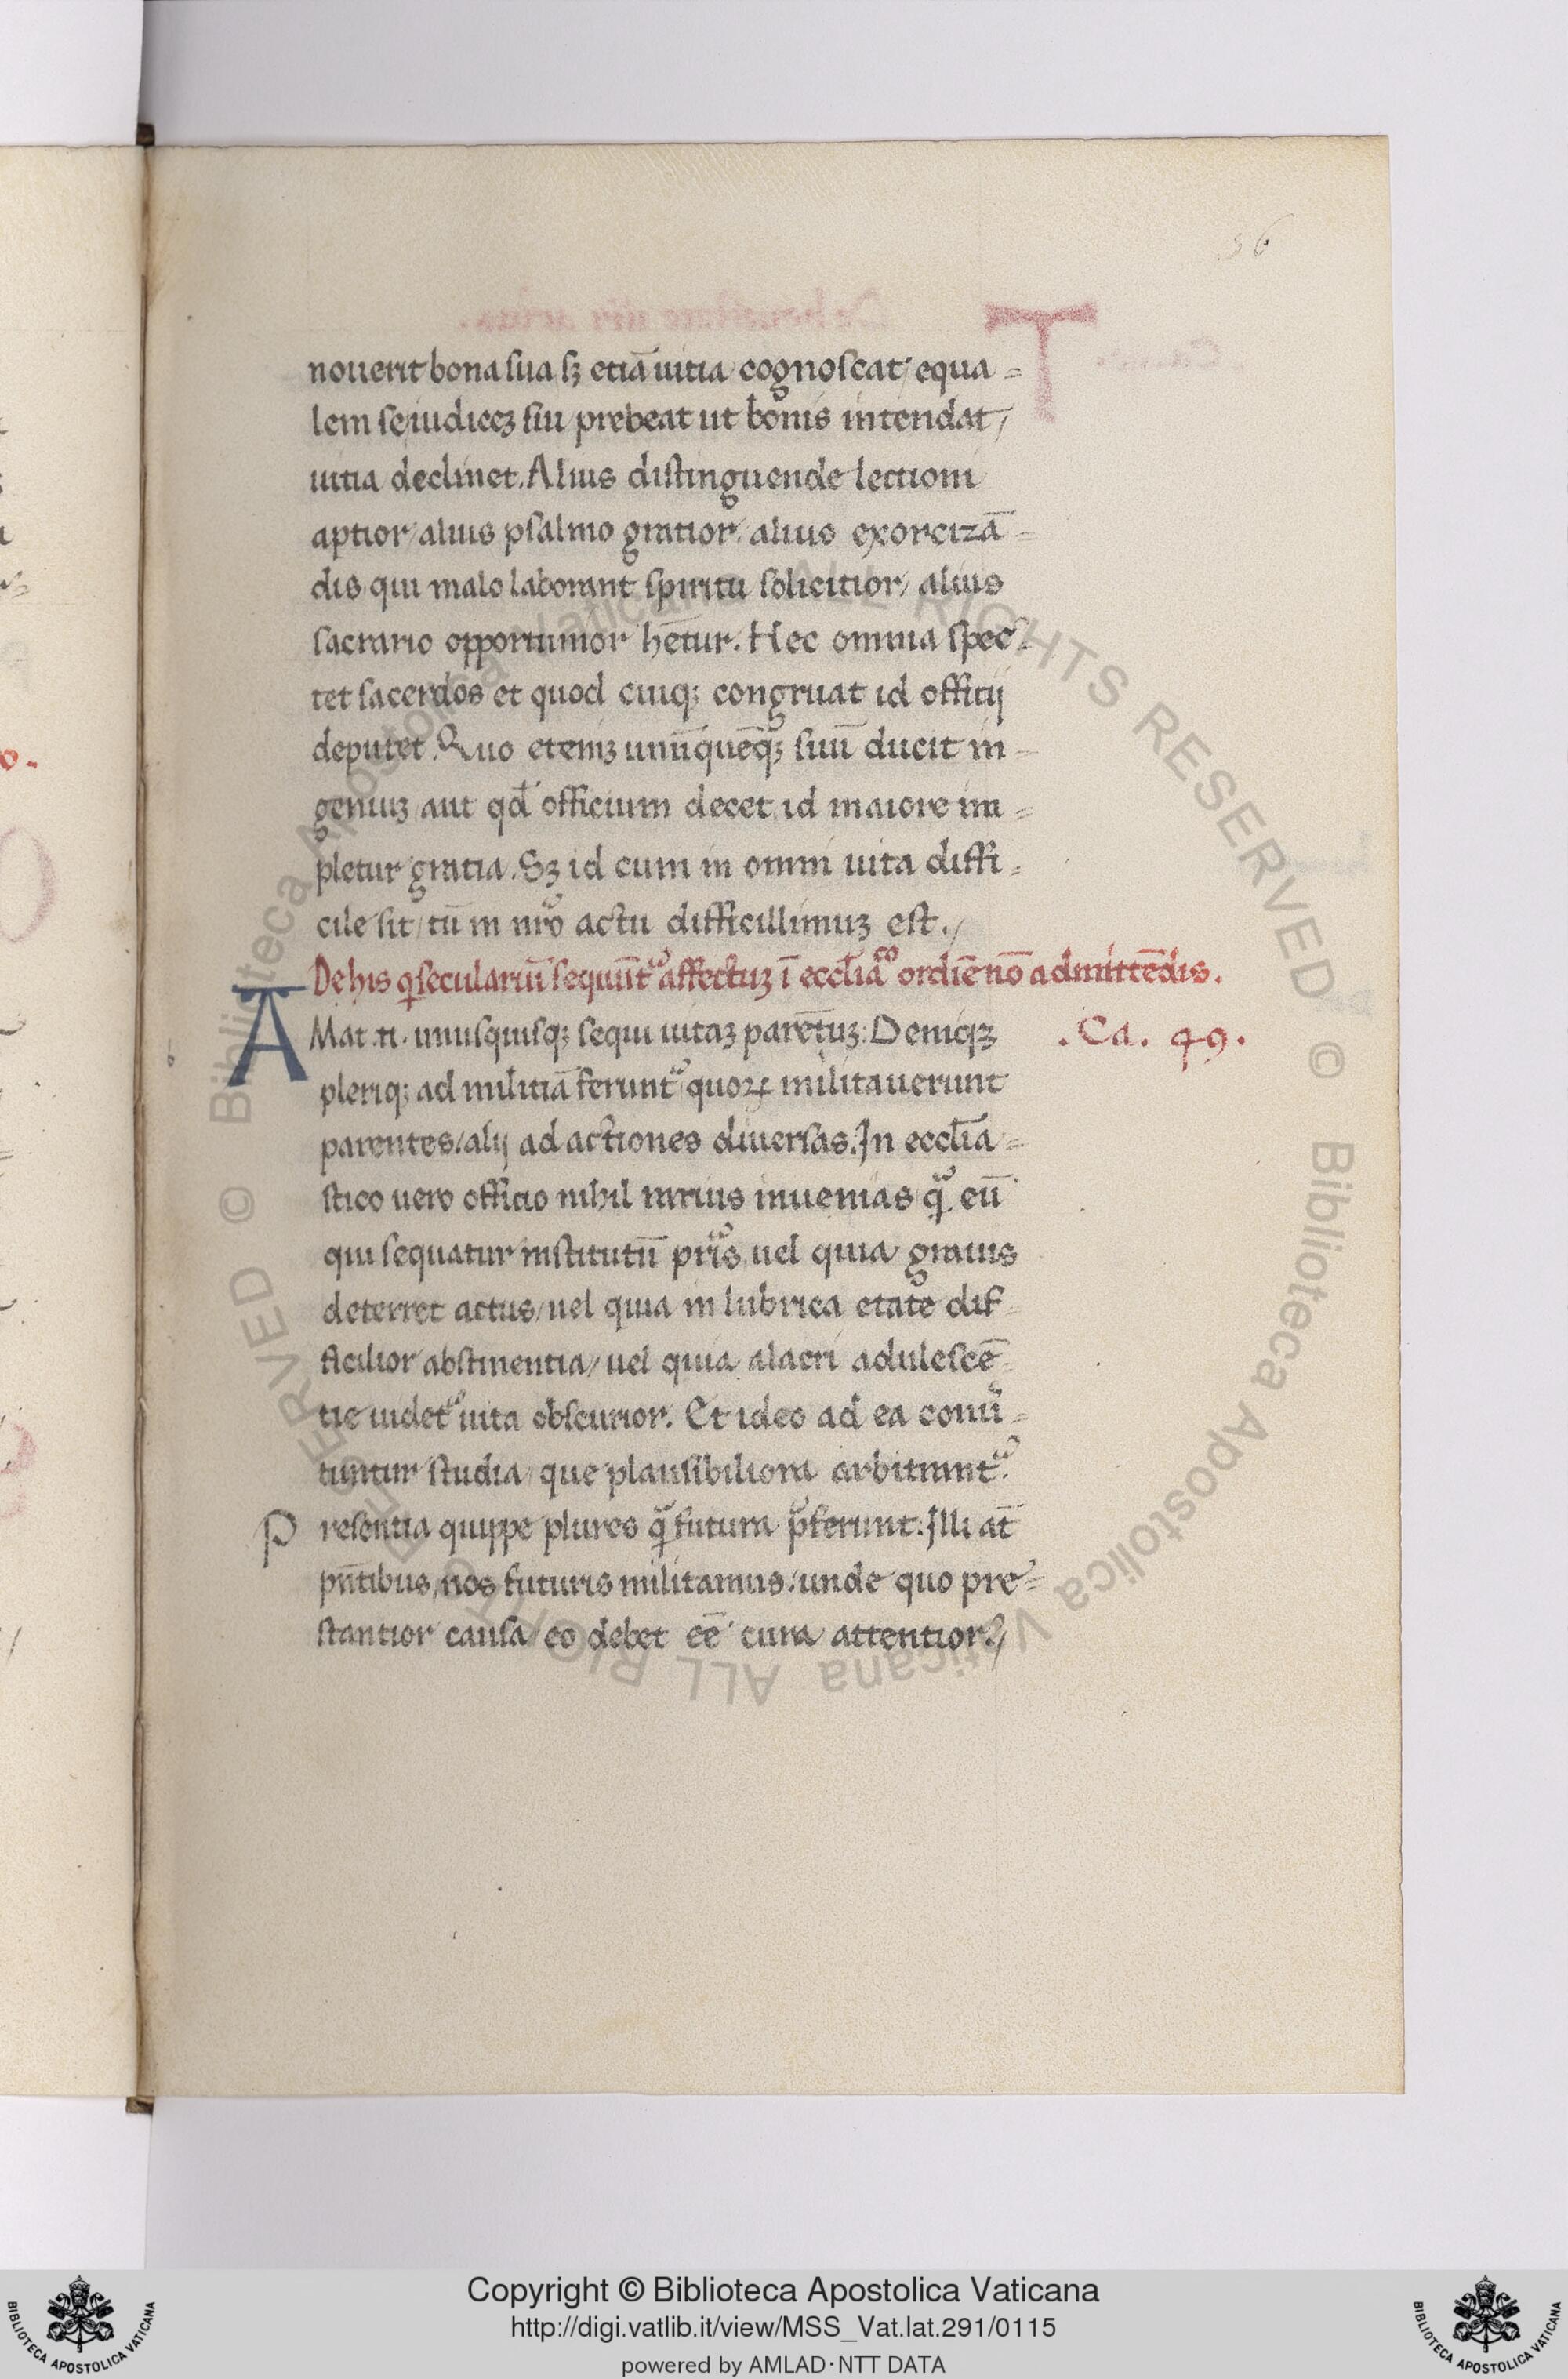 56
nouerit bona sua sꝫ etiā uitia cognoscat equa=
lem se iudicēꝫ sui prebeat ut bonis intendat/
uitia declinet. Alius distinguende lectioni
aptior/ alius psalmo gratior/ alius exorcizā=
dis qui malo laborant spiritu solicitior/ alius
sacrario opportunior hētur. Hec omnia spec=
tet sacerdos et quod cuiqꝫ congruat id officij
deputet. Quo etenīꝫ unūquēqꝫ suū ducit in=
geniuꝫ/ aut qd̓ officium decet id maiore im=
pletur gratia. Sꝫ id cum in omni uita diffi=
cile sit/ tū in nr̄o actu difficillimuꝫ est./
De his q̇ seculariū sequūt᷑ affectuꝫ ī eccl̄iaco ordīe nō admittēdis.
AMat .n. unusquisqꝫ sequi uitaꝫ parētuꝫ: Deniqꝫ
.Ca. 49.
pleriqꝫ ad militiā ferunt᷑ quoꝝ militauerunt
parentes/ alij ad actiones diuersas. In eccl̄ia=
stico uero officio nihil rarius inuenias qᷓ eū
qui sequatur institutū pr̄is uel quia grauis
deterret actus/ uel quia in lubrica etate dif=
ficilior abstinentia/ uel quia alacri adulescē=
tie uidet᷑ uita obscurior. Et ideo ad ea conu̓=
tuntur studia/ que plausibiliora arbitrant᷑.
Presentia quippe plures qᷓ futura p̄ferunt: Illi at̄
pn̄tibus, nos futuris militamus/ unde quo pre=
stantior causa/ eo debet eē cura attentior./
Copyright © Biblioteca Apostolica Vaticana
http://digi.vatlib.it/view/MSS_Vat.lat.291/0115
powered by AMLAD·NTT DATA
BIBLIOTECA APOSTOLICA VATICANA
BIBLIOTECA APOSTOLICA VATICANA
© Biblioteca Apostolica Vaticana ALL RIGHTS RESERVED
© Biblioteca Apostolica Vaticana ALL RIGHTS RESERVED